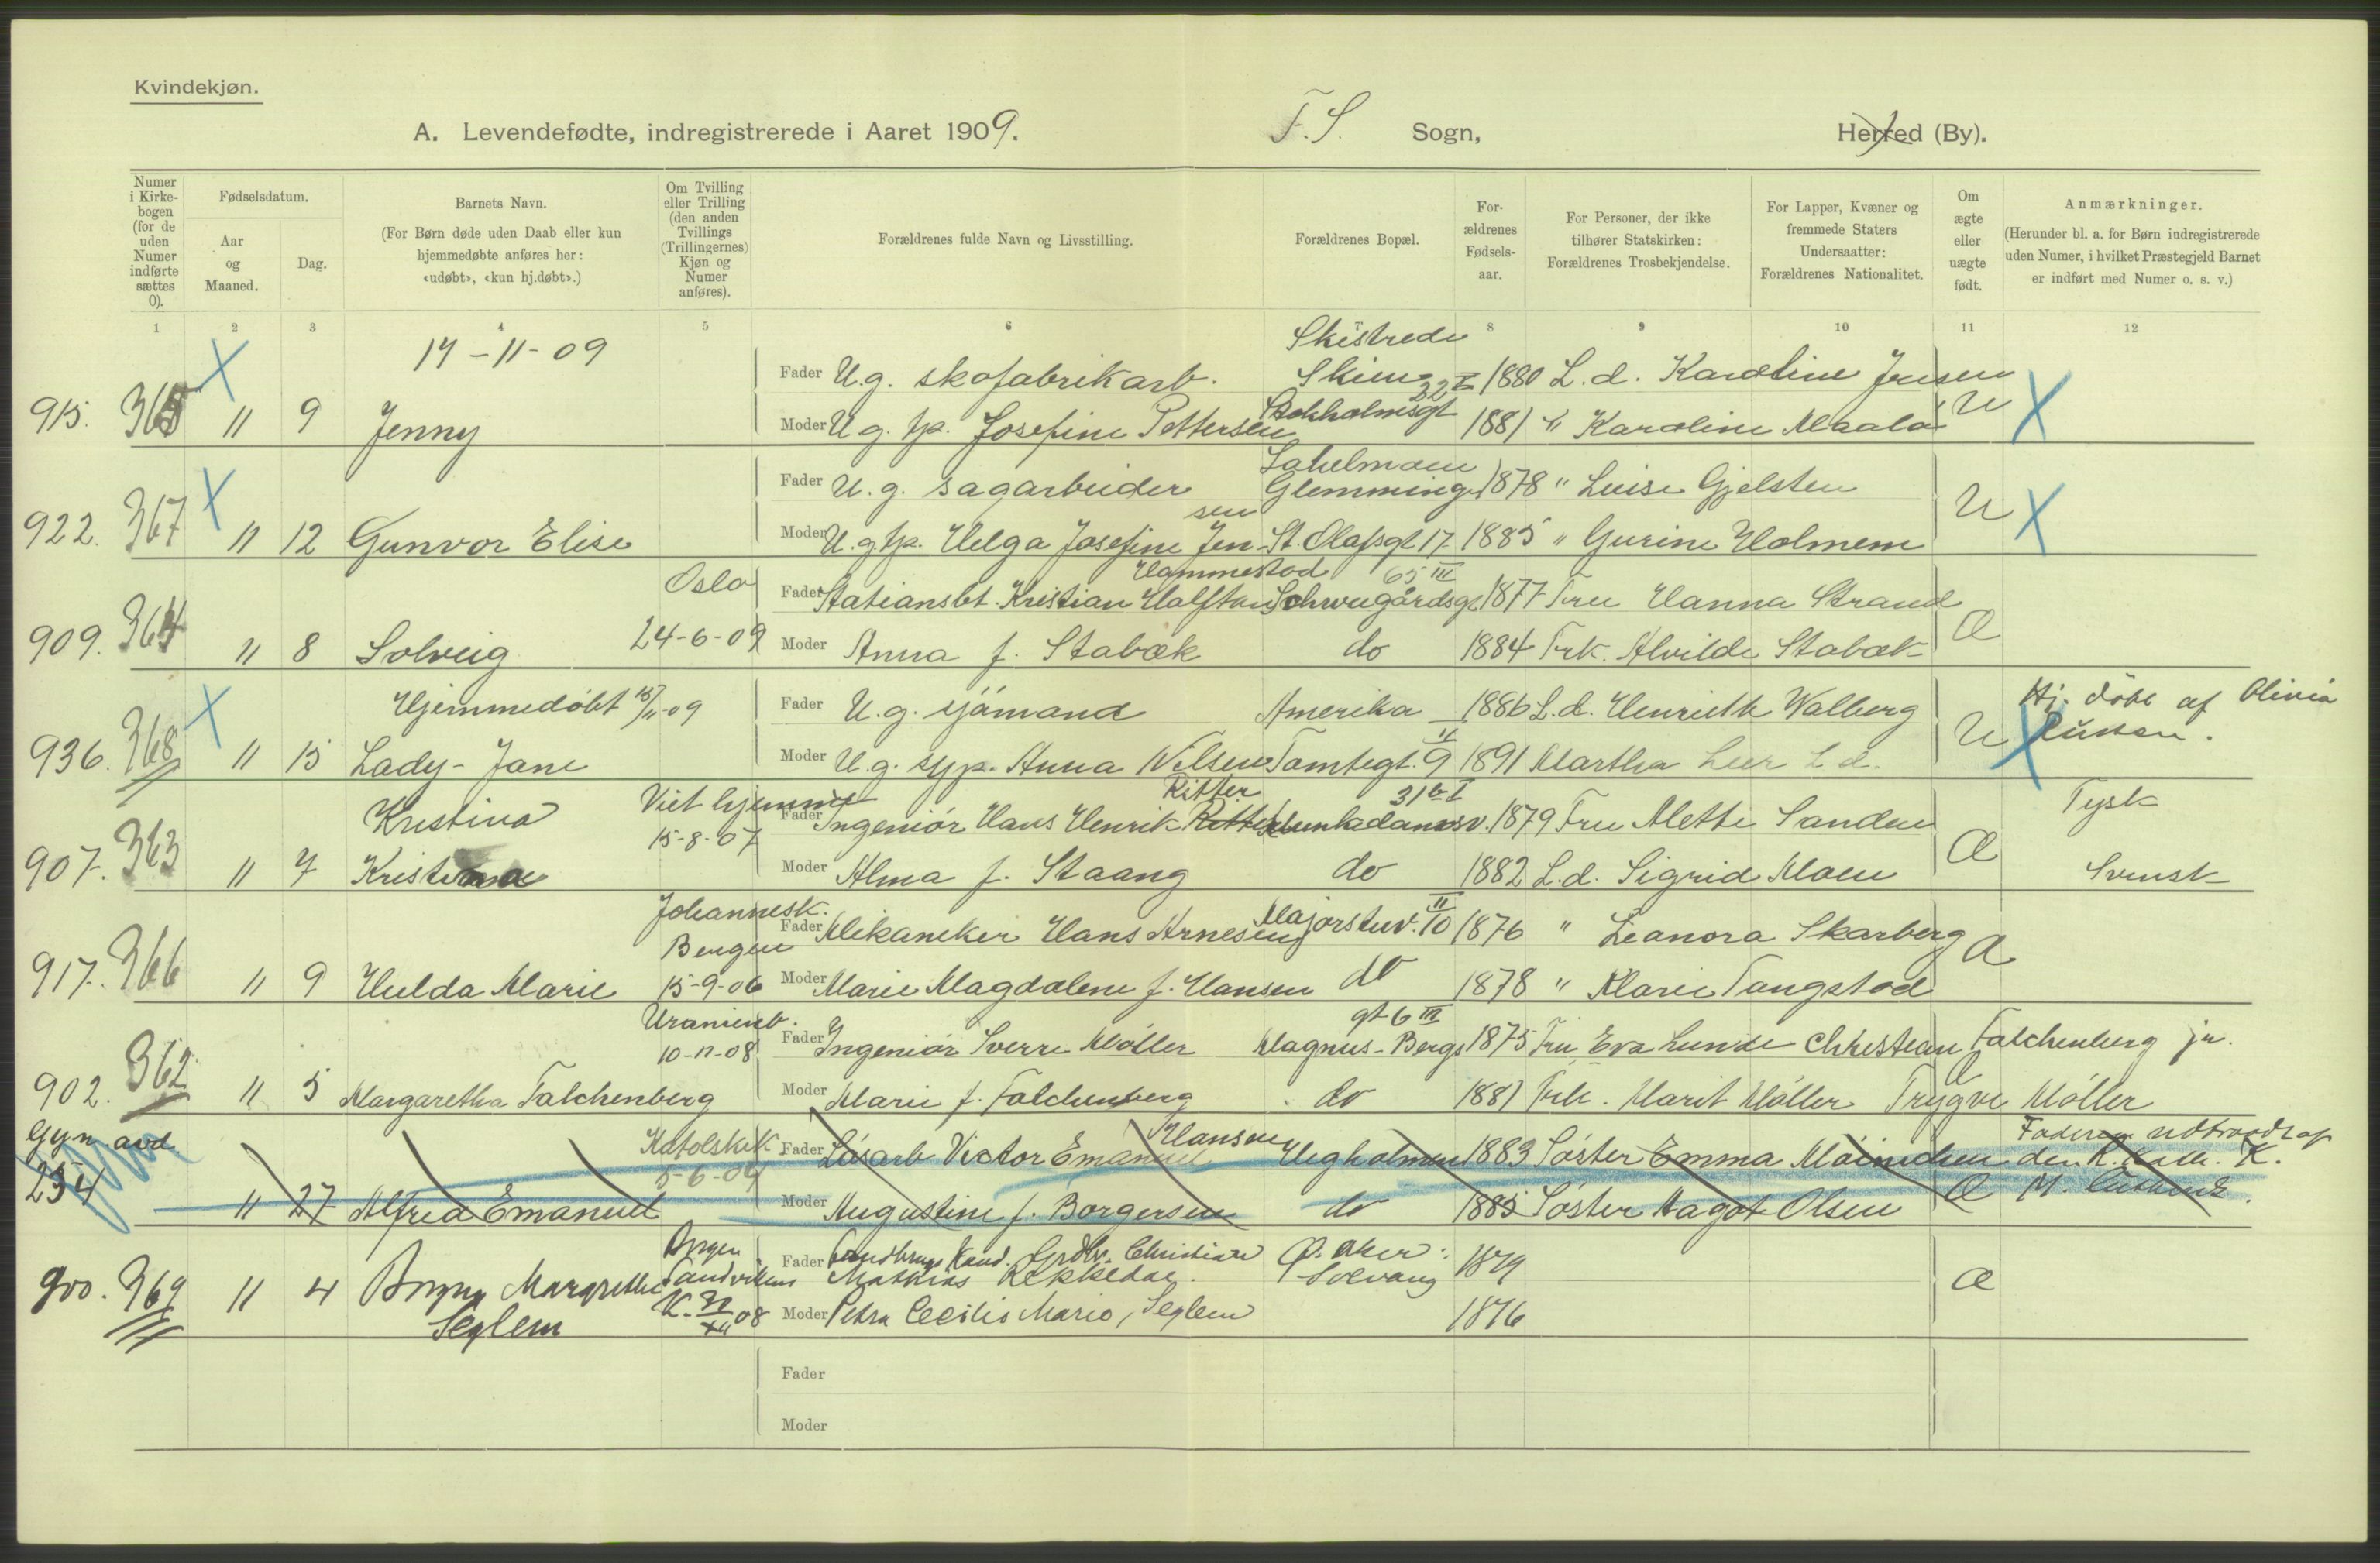 Kvindekjøn.
A. Levendefødte, indregistrerede i Aaret 1909. F. S. Sogn, Herred (By).
Numer i Kirke- bogen (for de uden Numer indførte sættes 0).
Fødselsdatum.
Aar og Maaned.
Dag.
Barnets Navn.
(For Børn døde uden Daab eller kun hjemmedøbte anføres her: «udøbt», «kun hj.døbt».)
Om Tvilling eller Trilling (den anden Tvillings (Trillingernes) Kjøn og Numer anføres).
Forældrenes fulde Navn og Livsstilling.
Forældrenes Bopæl.
For- ældrenes Fødsels- aar.
For Personer, der ikke tilhører Statskirken: Forældrenes Trosbekjendelse.
For Lapper, Kvæner og fremmede Staters Undersaatter: Forældrenes Nationalitet.
Om ægte eller uægte født.
Anmærkninger.
(Herunder bl. a. for Børn indregistrerede uden Numer, i hvilket Præstegjeld Barnet er indført med Numer o. s. v.)
1 2 3 4 5 6 7 8 9 10 11 12
17-11-09 Skistrede
Fader U.g. skofabrikarb. Skien 1880 L.d. Karoline Jensen
915. 365 " 9 Jenny Moder U.g. tp. Josefine Pettersen Stokholmsgt 22 1881 " Karoline Maalø U
Fader U.g. sagarbeider Glemminge 1878 " Luise Gjelsten
922. 367 " 12 Gunvor Elise Moder U.g. tp. Helga Josefine Jensen St. Olafsgt 17 1885 " Gurine Holmem U
Oslo Fader Stationsbt. Kristian Halftan Hammestad Schweigårdsgt 65 III 1877 Fru Hanna Strand
909. 364 " 8 Solveig 24-6-09 Moder Anna f. Stabæk do 1884 Frk. Alvilde Stabæk Æ
Hjemmedøbt 15/11-09 Fader U.g. sjømand Amerika 1886 L.d. Henriette Walberg Hj. døbt af Olivia
936. 368 " 15 Lady-Jane Moder U.g. syp. Anna Nilsen Tomtegt. 9 II 1891 Martha Leer L.d. U
Kristina Viet hjemme Fader Ingeniør Hans Henrik Ritter Ritter Munkedamsv. 31 b I 1879 Fru Mette Sanden Tysk
15-8-07
907. 363 " 7 Moder Alma f. Staang do 1882 L.d. Sigrid Moen Æ Svensk
Johannesk. Bergen Fader Mekaneker Hans Arnesen Majorstuv. 10 II 1876 " Leanora Skarberg
917. 366 " 9 Hulda Marie 15-9-06 Moder Marie Magdalene f. Hansen do 1878 " Marie Tangstad Æ
Uranienb. 10-11-08 Fader Ingeniør Sverre Møller Magnus-Bergs gt 6 III 1875 Fru Eva Lunde Christian Falchenberg jr.
902. 362 " 5 Margaretha Falchenberg Moder Marie f. Falchenberg do 1881 Frk. Marit Møller Trygve Møller Æ
Gyn. avd. Katolsk K Fader Løsarb Victor Emanuel Hansen Hegholmen 1883 Søster Emma Faderen udtraadt af den R. Kath. K.
234 " 27 Alfred Emanuel 5-6-09 Moder Augustine f. Borgersen do 1885 Søster Dagot Olsen Æ
Bergen Sandvikens K. 08 Fader Christian Mathias Rekkedal Ø. Aker: Solvang 1879
900. 369 " 4 Borgny Margrethe Seglem Moder Petra Cecilie Marie, Seglem 1876 Æ
Fader
Moder